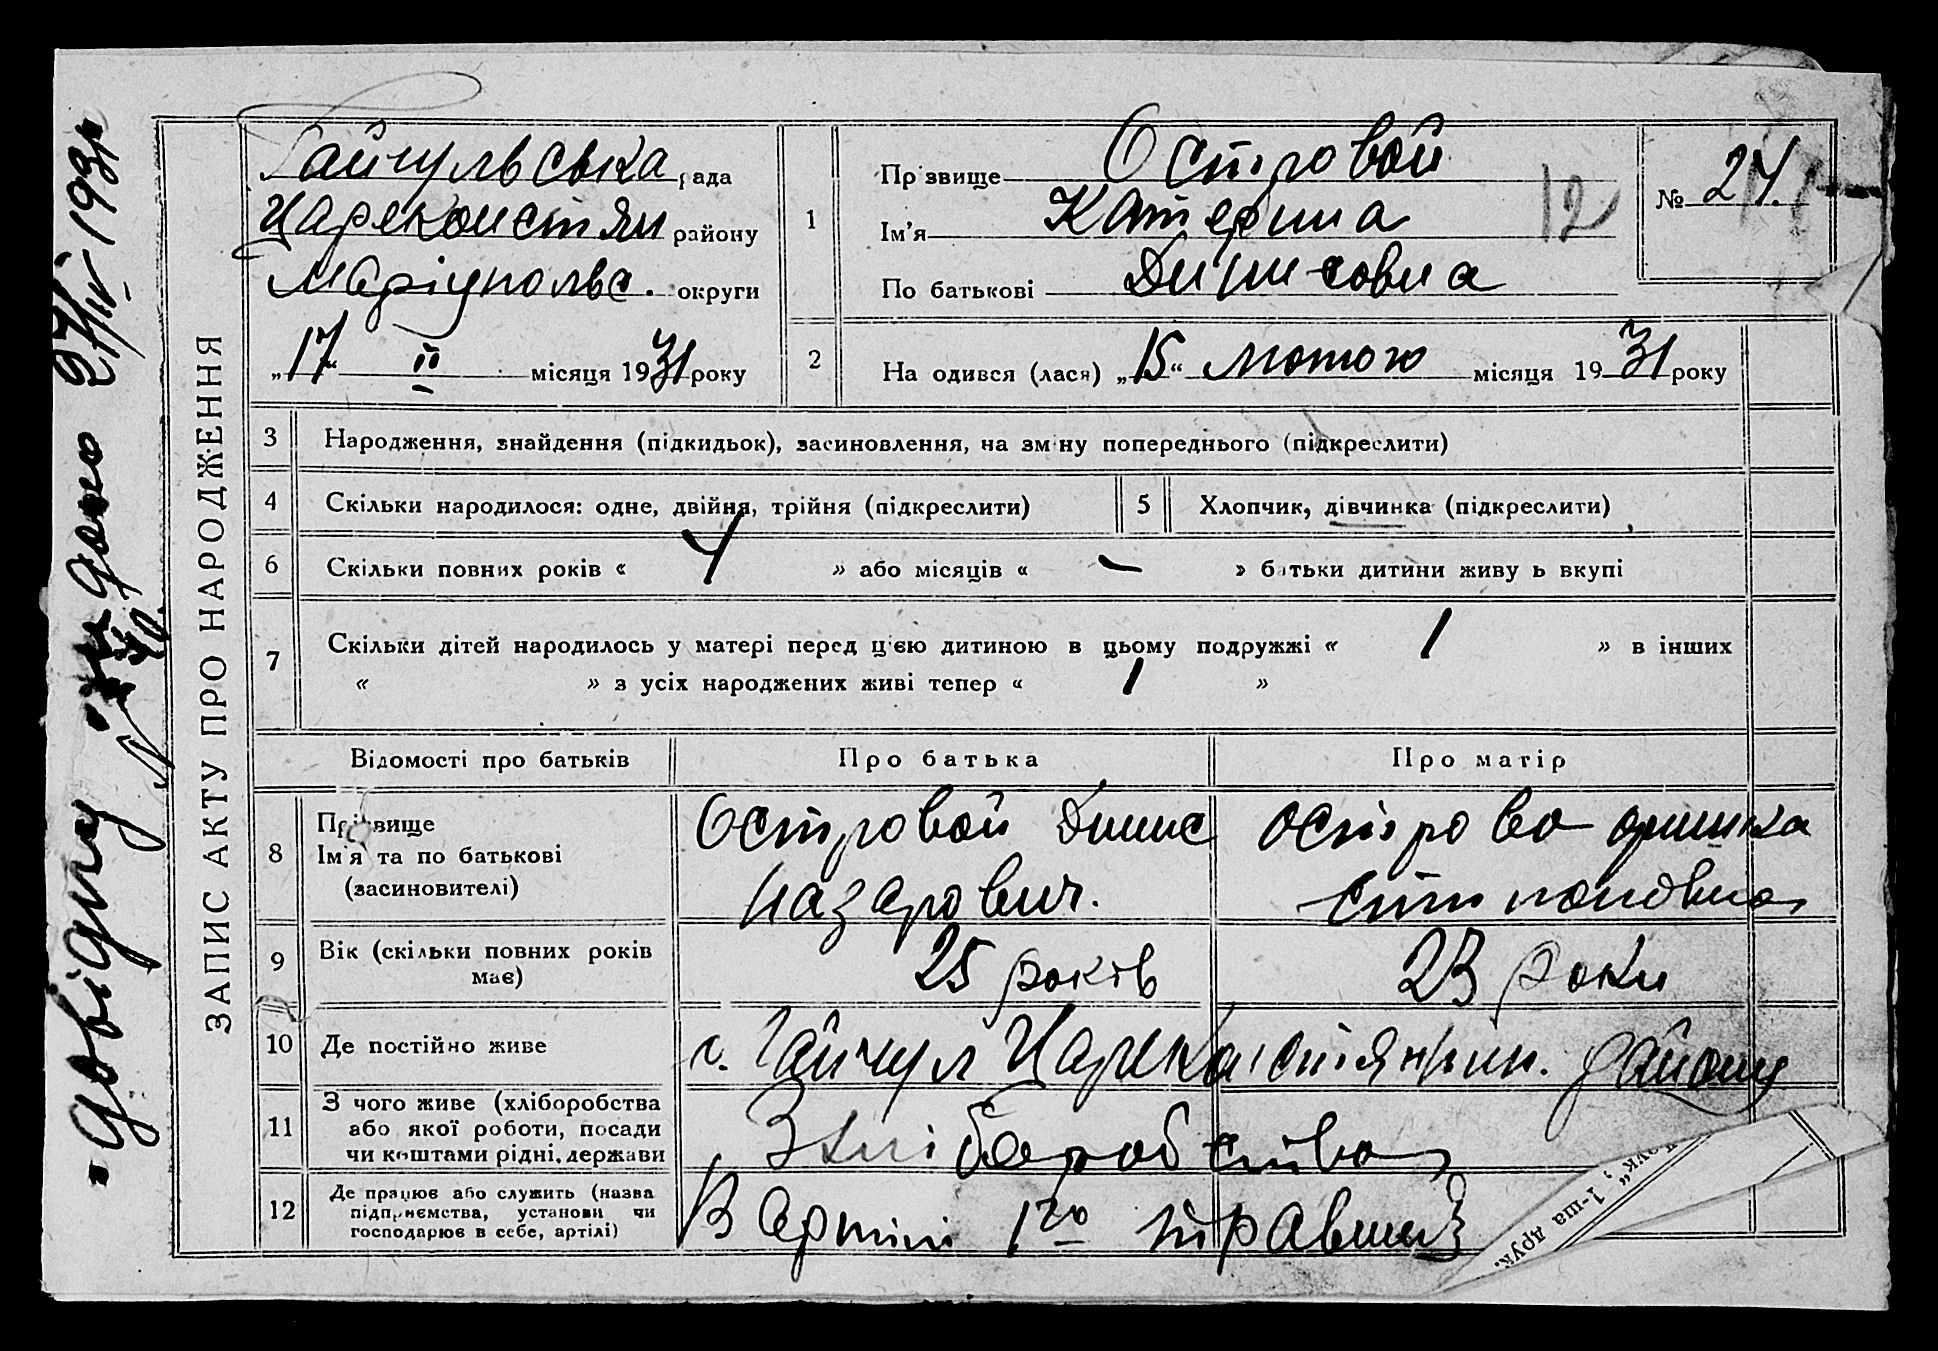 ЗАПИС АКТУ ПРО НАРОДЖЕННЯ
Гайчульська рада
Цареконстян району
Маріупольс. округи
„17“ II місяця 1931 року
1
Прізвище Островой
Ім'я Катерина
По батькові Динисовна
12
№ 24.
2
На одився (лася) „15“ лютого місяця 1931 року
3 Народження, знайдення (підкидьок), засиновлення, на зміну попереднього (підкреслити)
4 Скільки народилося: одне, двійня, трійня (підкреслити)
5 Хлопчик, дівчинка (підкреслити)
6 Скільки повних років « 4 » або місяців « – » батьки дитини живу ь вкупі
7 Скільки дітей народилось у матері перед цією дитиною в цьому подружжі « 1 » в інших
« » з усіх народжених живі тепер « 1 »
Відомості про батьків Про батька Про матір
8 Прізвище
Ім'я та по батькові
(засиновителі)
Островой Динис
Назарович.
Острова оришка
9 Вік (скільки повних років
має)
25 років
23 роки
10 Де постійно живе
с. Гайчул Цареконстянтин. району
11 З чого живе (хліборобства
або якої роботи, посади
чи коштами рідні, держави
З хліборобства
12 Де працює або служить (назва
підприємства, установи чи
господарює в себе, артілі)
В артілі 1го травня
друк. 1-ша
довідку